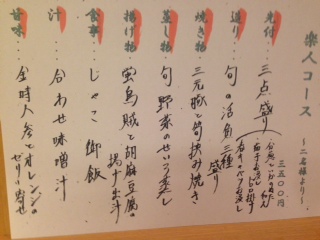 楽人コース ～二名様より～
三五〇〇円
先付 三点盛り
造り 旬の活魚三種盛り
焼き物 三元豚と筍挟み焼き
蒸し物 旬野菜のせいろ蒸し
揚げ物 蛍烏賊と胡麻豆腐の揚げ出汁
食事 じゃこ御飯
汁 合わせ味噌汁
甘味 金時人参とオレンジのゼリー寄せ